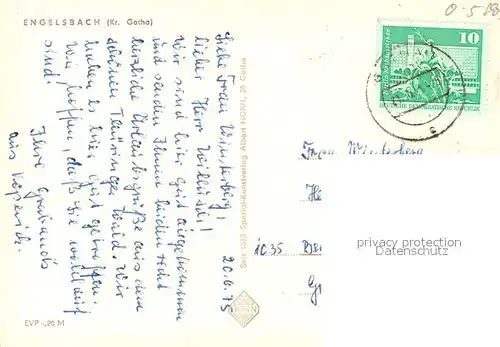 ENGELSBACH (Kr. Gotha)
20.6.75
Liebe Frau Winterberg,
lieber Herr Willusi!
Wir sind hier gut angekommen
und senden Ihnen beiden recht
herzliche Urlaubsgrüße aus dem
schönen Thüringer Wald. Wir
haben es hier gut getroffen.
Wir hoffen, daß Sie wohlauf
sind!
Ihre
aus Köpenick.
EVP -,20 M
Seit 1885 Spezial-Kunstverlag Albert HORN, 58 Gotha
HORN
0-5
10
DEUTSCHE DEMOKRATISCHE REPUBLIK
Frau Winterberg
He
1035 Ber
G
privacy protection
Datenschutz